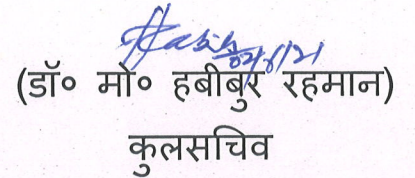 (डॉ० मो० हबीबुर रहमान)
कुलसचिव